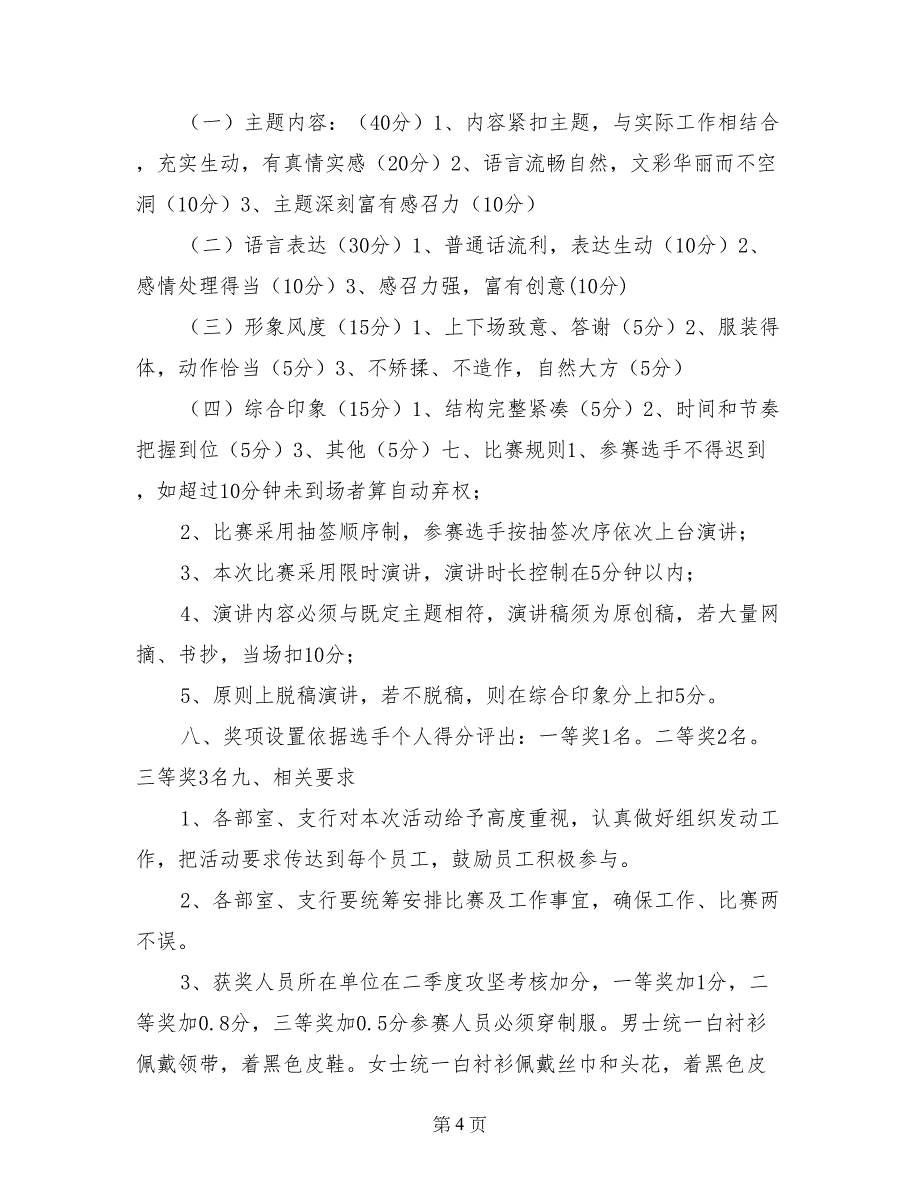 （一）主题内容：（40分）1、内容紧扣主题，与实际工作相结合
，充实生动，有真情实感（20分）2、语言流畅自然，文彩华丽而不空
洞（10分）3、主题深刻富有感召力（10分）
（二）语言表达（30分）1、普通话流利，表达生动（10分）2、
感情处理得当（10分）3、感召力强，富有创意(10分)
（三）形象风度（15分）1、上下场致意、答谢（5分）2、服装得
体，动作恰当（5分）3、不矫揉、不造作，自然大方（5分）
（四）综合印象（15分）1、结构完整紧凑（5分）2、时间和节奏
把握到位（5分）3、其他（5分）七、比赛规则1、参赛选手不得迟到
，如超过10分钟未到场者算自动弃权；
2、比赛采用抽签顺序制，参赛选手按抽签次序依次上台演讲；
3、本次比赛采用限时演讲，演讲时长控制在5分钟以内；
4、演讲内容必须与既定主题相符，演讲稿须为原创稿，若大量网
摘、书抄，当场扣10分；
5、原则上脱稿演讲，若不脱稿，则在综合印象分上扣5分。
八、奖项设置依据选手个人得分评出：一等奖1名。二等奖2名。
三等奖3名九、相关要求
1、各部室、支行对本次活动给予高度重视，认真做好组织发动工
作，把活动要求传达到每个员工，鼓励员工积极参与。
2、各部室、支行要统筹安排比赛及工作事宜，确保工作、比赛两
不误。
3、获奖人员所在单位在二季度攻坚考核加分，一等奖加1分，二
等奖加0.8分，三等奖加0.5分参赛人员必须穿制服。男士统一白衬衫
佩戴领带，着黑色皮鞋。女士统一白衬衫佩戴丝巾和头花，着黑色皮
第 4 页